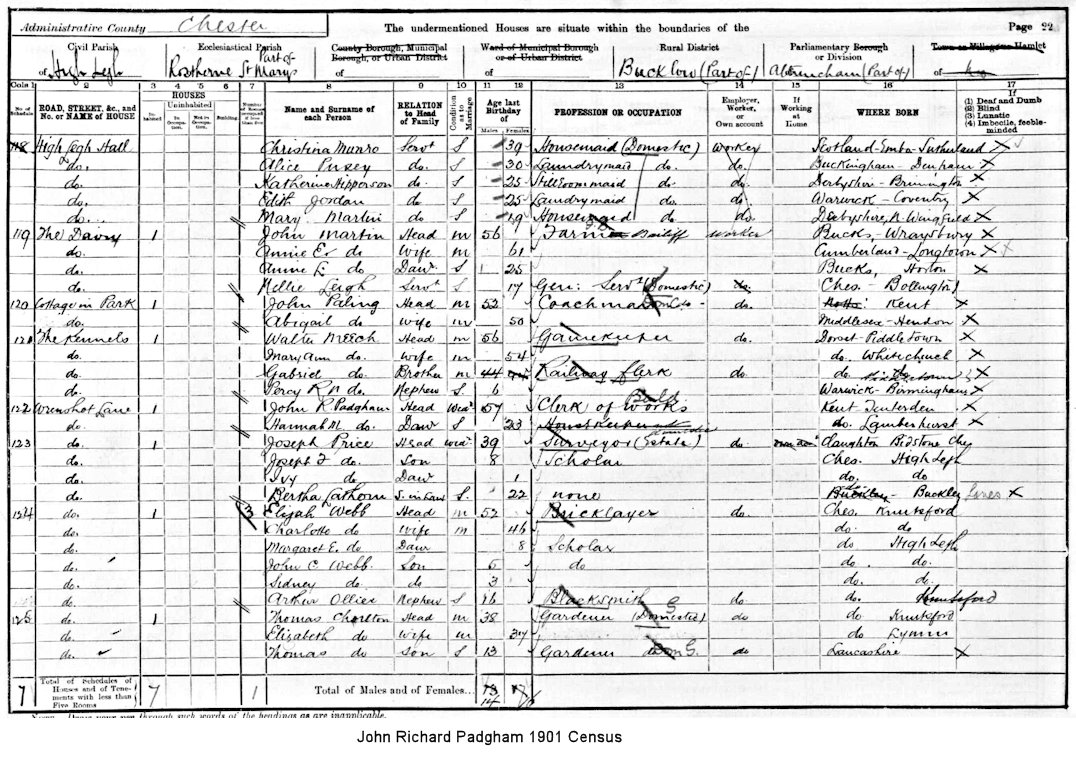 Administrative County Chester The undermentioned Houses are situate within the boundaries of the Page 22
Civil Parish Ecclesiastical Parish County Borough, Municipal Borough, or Urban District Ward of Municipal Borough or of Urban District Rural District Parliamentary Borough or Division Town or Village or Hamlet
of High Legh Part of Rostherne St Marys of of Bucklow (Part of) Altrincham (Part of) of
Cols 1 2 3 4 5 6 7 8 9 10 11 12 13 14 15 16 17
No. of Schedule ROAD, STREET, &c., and No. or NAME of HOUSE HOUSES Inhabited Uninhabited In Occupation. Not in Occupation. Building. Name and Surname of each Person RELATION to Head of Family Condition as to Marriage Age last Birthday of Males Females PROFESSION OR OCCUPATION Employer, Worker, or Own account If Working at Home WHERE BORN If (1) Deaf and Dumb (2) Blind (3) Lunatic (4) Imbecile, feeble-minded
118 High Legh Hall Christina Munro Servt S 39 Housemaid (Domestic) Worker Scotland - Sutherland X
do. Alice Pusey do S 30 Laundrymaid do. do. Buckingham - Denham X
do. Katherine Hipperson do. S 25 Stillroommaid do. do. Derbyshire - Brimington X
do. Edith Jordan do S 25 Laundrymaid do. do. Warwick - Coventry X
do. Mary Martin do S 19 Housemaid do do. Derbyshire, N. Wingfield X
119 The Dairy 1 John Martin Head m 56 Farm Bailiff Worker Bucks, - Wraysbury X
do. Annie E. do Wife m 61 Cumberland - Longtown X
do. Annie E. do Daur S 25 Bucks, Horton X
do. Nellie Leigh Servt S 17 Gen: Servt (Domestic) do. Ches. - Bollington
120 Cottage in Park 1 John Paling Head m 52 Coachman do. Kent X
do. Abigail do Wife m 50 Middlesex - Hendon X
121 The Kennels 1 Walter Meech Head m 56 Gamekeeper do. Dorset - Piddletown X
do. Mary Ann do. Wife m 54 do. Whitechurch X
do. Gabriel do. Brother m 44 Railway Clerk do. do X
do. Percy R. do. Nephew S 6 Warwick - Birmingham X
122 Wrenshot Lane 1 John R. Padgham Head Widr 57 Clerk of Works Kent Tenterden X
do. Hannah M. do. Daur S 23 Housekeeper do. Lamberhurst X
123 do. 1 Joseph Price Head Widr 39 Surveyor (Estate) do Claughton Bidstone Ches
do. Joseph F. do. Son 8 Scholar Ches. High Legh
do. Ivy do Daur 1 do. do
do. Bertha Lathom S. in law S. 22 none Buckley X
124 do. 1 3 Elijah Webb Head m 52 Bricklayer do Ches. Knutsford
do. Charlotte do Wife m 46 do. do
do. Margaret E. do Daur 8 Scholar do High Legh
do. John C Webb Son 5 do do. do.
do. Sidney do do 3 do. do.
do. Arthur Ollier Nephew S 16 Blacksmith do do. Knutsford
125 do. 1 Thomas Chorlton Head m 38 Gardener (Domestic) do do Knutsford
do. Elizabeth do Wife m 37 do Lymm
do. Thomas do Son S 13 Gardener do Lancashire X
7 Total of Schedules of Houses and of Tenements with less than Five Rooms 7 1 Total of Males and of Females... 14
NOTE. Draw your pen through such words of the headings as are inapplicable.
John Richard Padgham 1901 Census